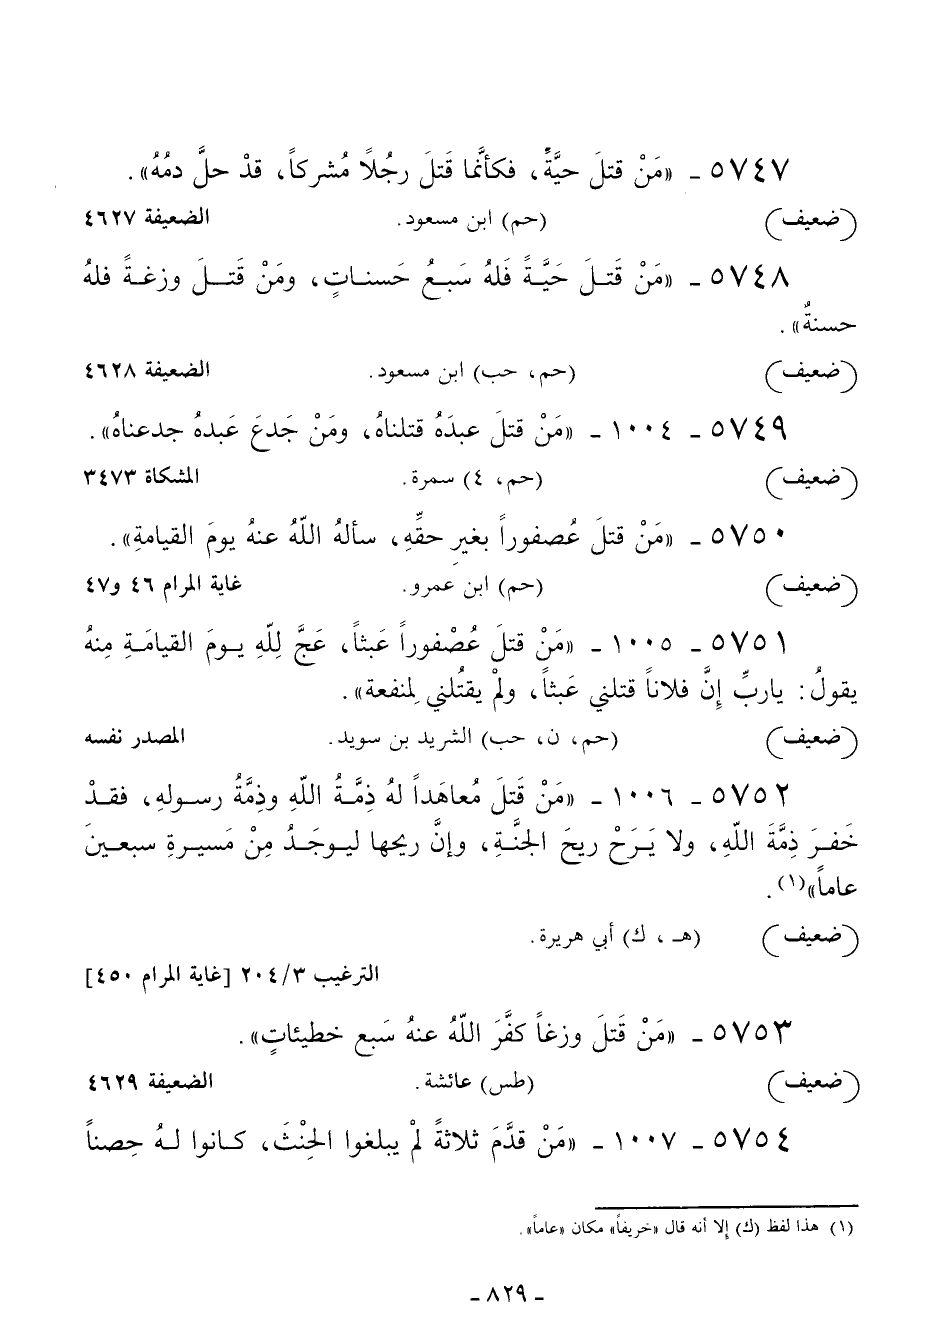 ٥٧٤٧ ـ «مَنْ قتلَ حيَّةً، فكأنَّما قَتلَ رجُلًا مُشركاً، قدْ حلَّ دمُهُ».
(ضعيف) (حم) ابن مسعود. الضعيفة ٤٦٢٧
٥٧٤٨ ـ «مَنْ قَتـلَ حَيَّـةً فَلهُ سَبـعُ حَسنـاتٍ، ومَنْ قَتـلَ وزغـةً فلهُ
حسنةٌ».
(ضعيف) (حم، حب) ابن مسعود. الضعيفة ٤٦٢٨
٥٧٤٩ ـ ١٠٠٤ ـ «مَنْ قتلَ عبدَهُ قتلناهُ، ومَنْ جَدعَ عَبدهُ جدعناهُ».
(ضعيف) (حم، ٤) سمرة. المشكاة ٣٤٧٣
٥٧٥٠ ـ «مَنْ قتلَ عُصفوراً بغيرِ حقِّهِ، سألهُ اللّهُ عنهُ يومَ القيامةِ».
(ضعيف) (حم) ابن عمرو. غاية المرام ٤٦ و٤٧
٥٧٥١ ـ ١٠٠٥ ـ «مَنْ قتلَ عُصْفوراً عَبثاً، عَجَّ لِلّهِ يـومَ القيامَـةِ مِنهُ
يقولُ: ياربِّ إِنَّ فلاناً قتلني عَبثاً، ولمْ يقتُلني لِمنفعة».
(ضعيف) (حم، ن، حب) الشريد بن سويد. المصدر نفسه
٥٧٥٢ ـ ١٠٠٦ ـ «مَنْ قَتلَ مُعاهَداً لهُ ذِمَّـةُ اللّهِ وذِمَّةُ رسـولهِ، فقـدْ
خَفـرَ ذِمَّةَ اللّهِ، ولا يَـرَحْ ريحَ الجنَّـةِ، وإنَّ ريحها ليـوجَـدُ مِنْ مَسيـرةِ سبعـينَ
عاماً»(١).
(ضعيف) (هـ، ك) أبي هريرة.
الترغيب ٢٠٤/٣ [غاية المرام ٤٥٠]
٥٧٥٣ ـ «مَنْ قَتلَ وزغاً كفَّرَ اللّهُ عنهُ سَبع خطيئاتٍ».
(ضعيف) (طس) عائشة. الضعيفة ٤٦٢٩
٥٧٥٤ ـ ١٠٠٧ ـ «مَنْ قدَّمَ ثلاثةً لمْ يبلغوا الحِنْثَ، كـانوا لـهُ حِصناً
(١) هذا لفظ (ك) إلا أنه قال «خريفاً» مكان «عاماً».
ـ ٨٢٩ ـ